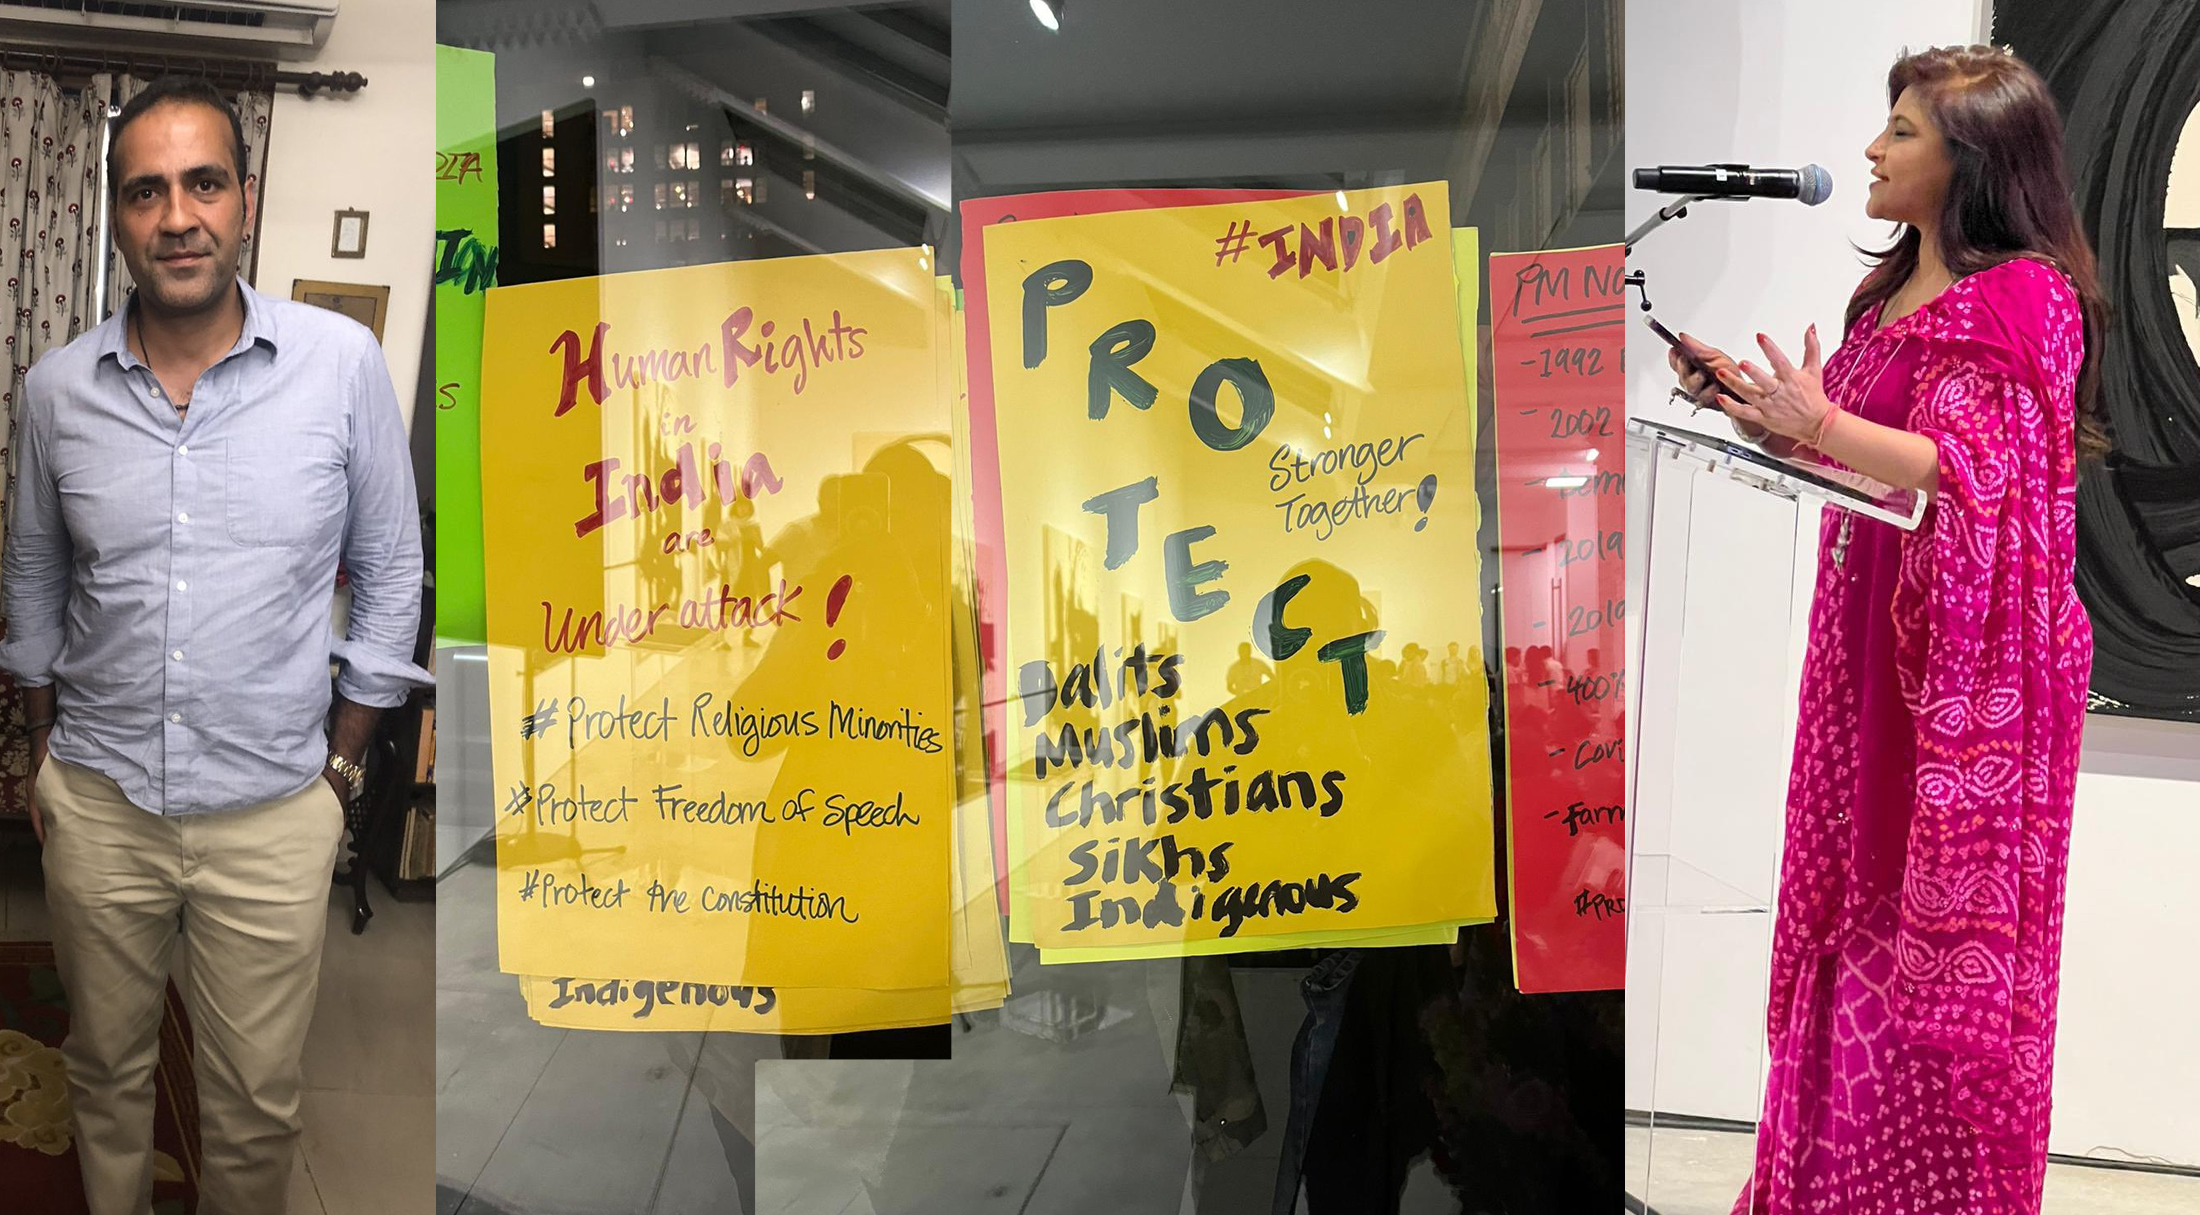 S
Human Rights
in
India
are
Under attack!
# Protect Religious Minorities
# Protect Freedom of Speech
# Protect the Constitution
Indigenous
#INDIA
PRO
TECT
Stronger
Together!
Dalits
Muslims
Christians
Sikhs
Indigenous
PM
-1992
- 2002
- 2019
- 2019
- 400%